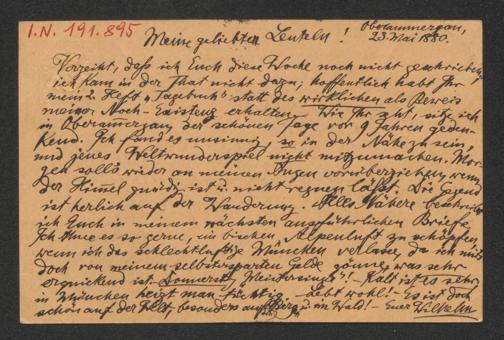 I.N. 191.895
Oberammergau,
23. Mai 1880.
Meine geliebten Leuteln!
Verzeiht, daß ich Euch diese Woche noch nicht geschrieben,
ich kam in der That nicht dazu; hoffentlich habt Ihr
mein 2. Heft „Tagebuch" statt des wirklichen als Beweis
meiner Noch-Existenz erhalten. Wie Ihr seht, sitze ich
in Oberammergau, der schönen Tage vor 9 Jahren geden-
kend. Ich fand es unsinnig, so in der Nähe zu sein,
und jenes Weltwunderspiel nicht mitzumachen. Mor-
gen soll's wieder an meinen Augen vorüberziehen, wenn
der Himmel gnädig ist u. nicht regnen läßt. Die Gegend
ist herlich auf der Wanderung. Alles Nähere beschreibe
ich Euch in meinem nächsten ausführlichen Briefe.
Ich thue es so gerne, ein bischen Alpenluft zu schöpfen,
wenn ich das schlechtluftige München verlasse, da ich mir's
doch von meinem selbstersparten Geld gönne, was sehr
erquickend ist. Donnerstag „Meistersinger"! – Kalt ist es sehr,
in München heizt man tüchtig. – Lebt wohl! – Es ist doch
schön auf der Welt, besonders auf Berg u. im Wald! – Euer Wilhelm